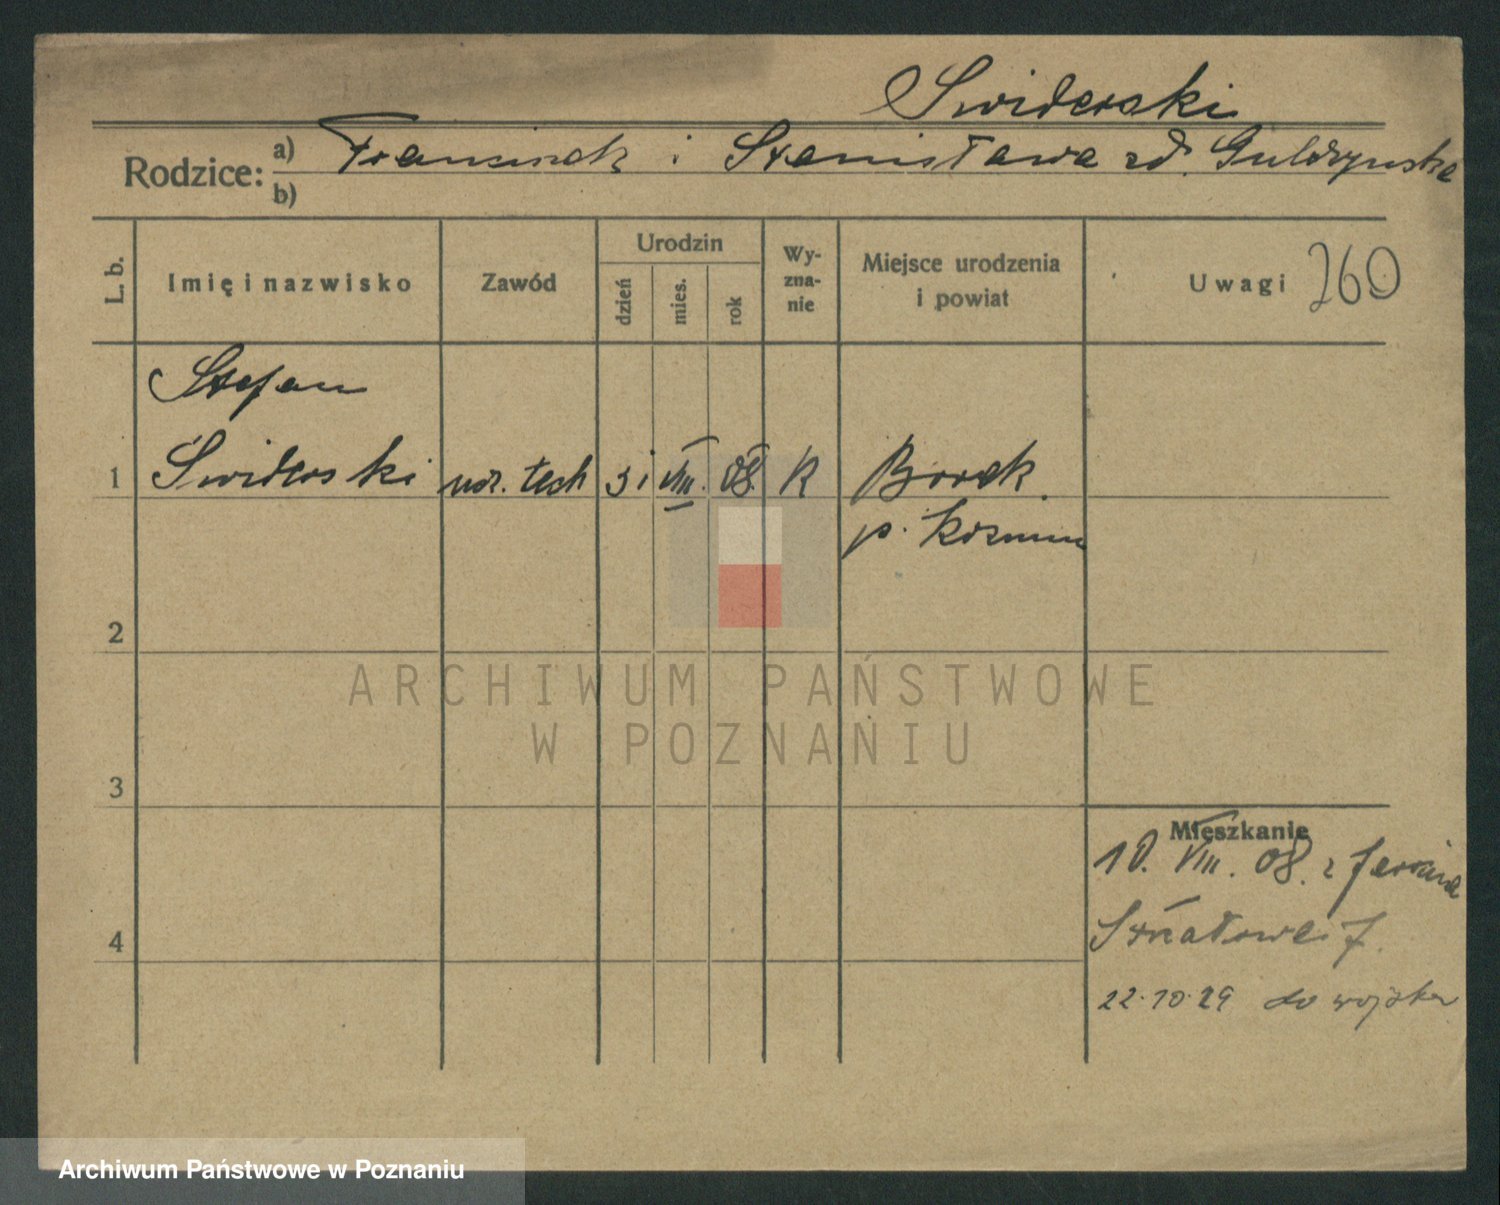 Swiderski
Rodzice: a) Franciszek i Stanisława zd. Guldzynska
b)
L. b.
Imię i nazwisko
Zawód
Urodzin
dzień
mies.
rok
Wy-
zna-
nie
Miejsce urodzenia
i powiat
Uwagi 260
Stefan
1 Świderski ucz. tech 31 VIII. 08. K Borek
p. Kozmin
2
3
4
Mieszkanie
10. VIII. 08. z
22.10.29 do wojska
ARCHIWUM PAŃSTWOWE
W POZNANIU
Archiwum Państwowe w Poznaniu